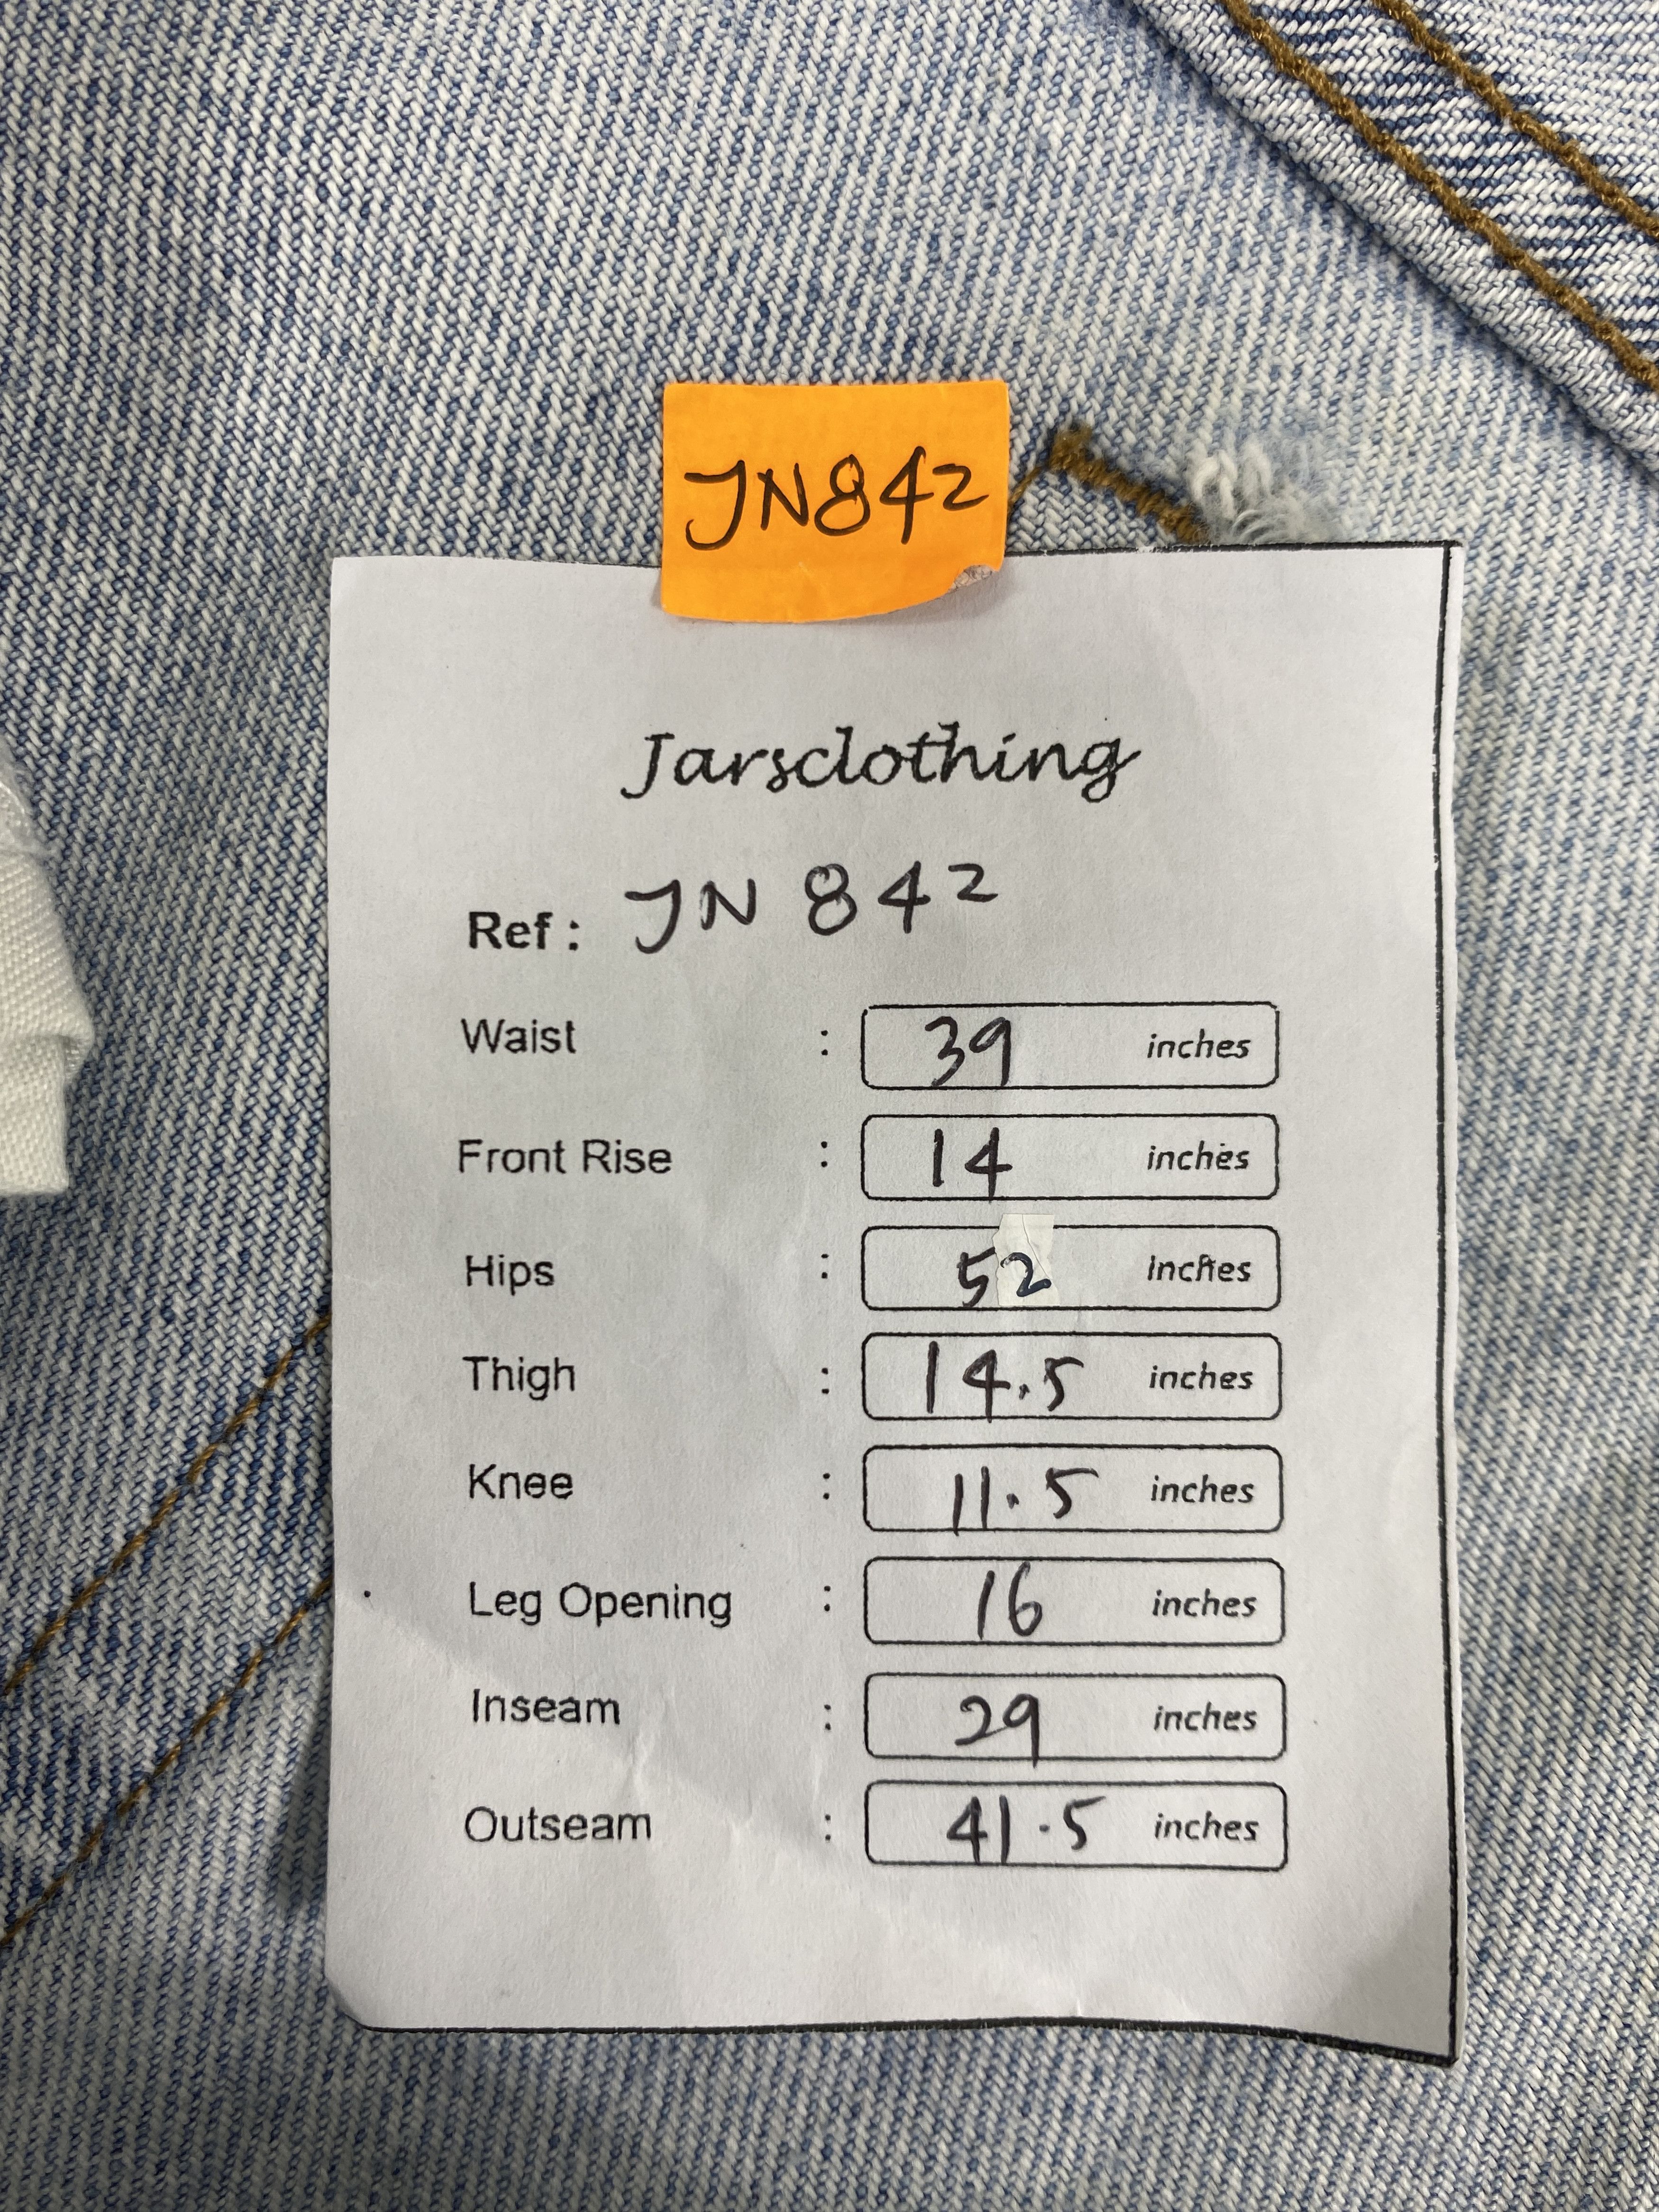 JN842
Jarsclothing
Ref : JN 842
Waist : 39 inches
Front Rise : 14 inches
Hips : 52 inches
Thigh : 14.5 inches
Knee : 11.5 inches
Leg Opening : 16 inches
Inseam : 29 inches
Outseam : 41.5 inches